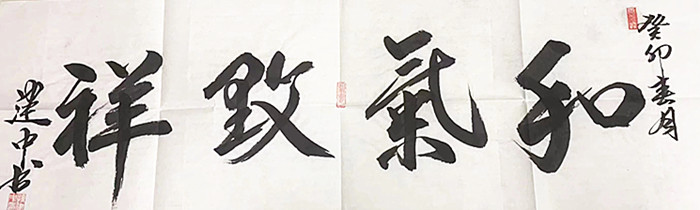 癸卯春月
和氣致祥
建中书